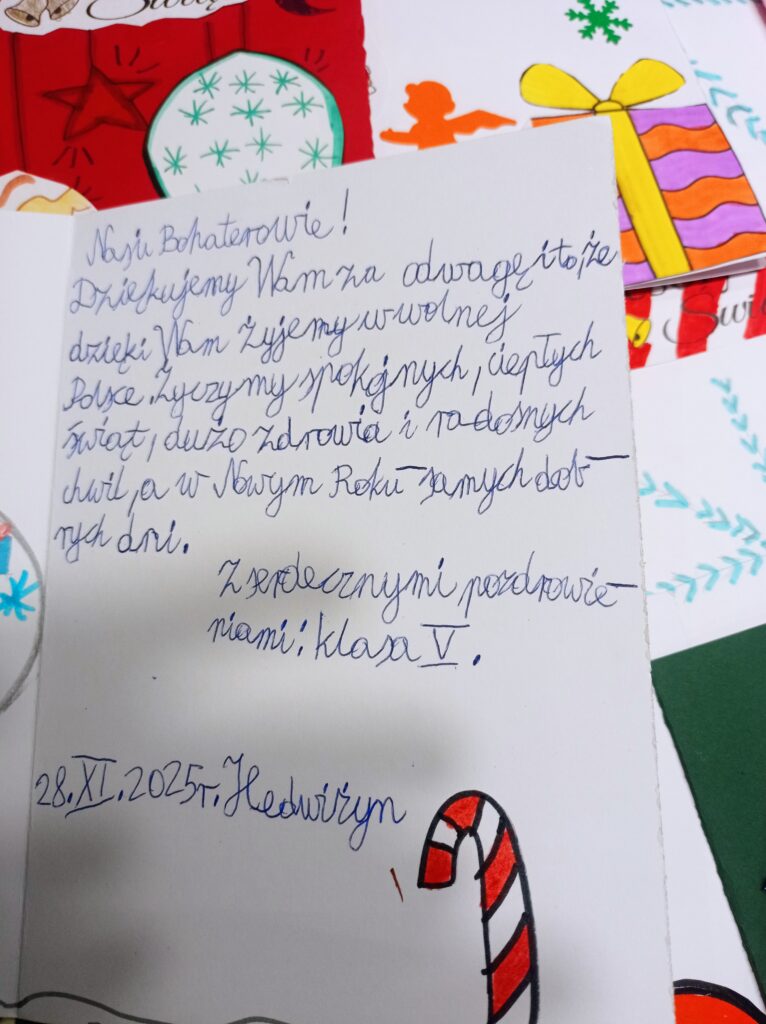 Święt
Nasi Bohaterowie!
Dziękujemy Wam za odwagę i to, że
dzięki Wam żyjemy w wolnej
Polsce. Życzymy spokojnych, ciepłych
świąt, dużo zdrowia i radosnych
chwil, a w Nowym Roku – samych dob-
rych dni.
Z serdecznymi pozdrowie-
niami: klasa V.
28.XI.2025r. Hedwiżyn
Świą